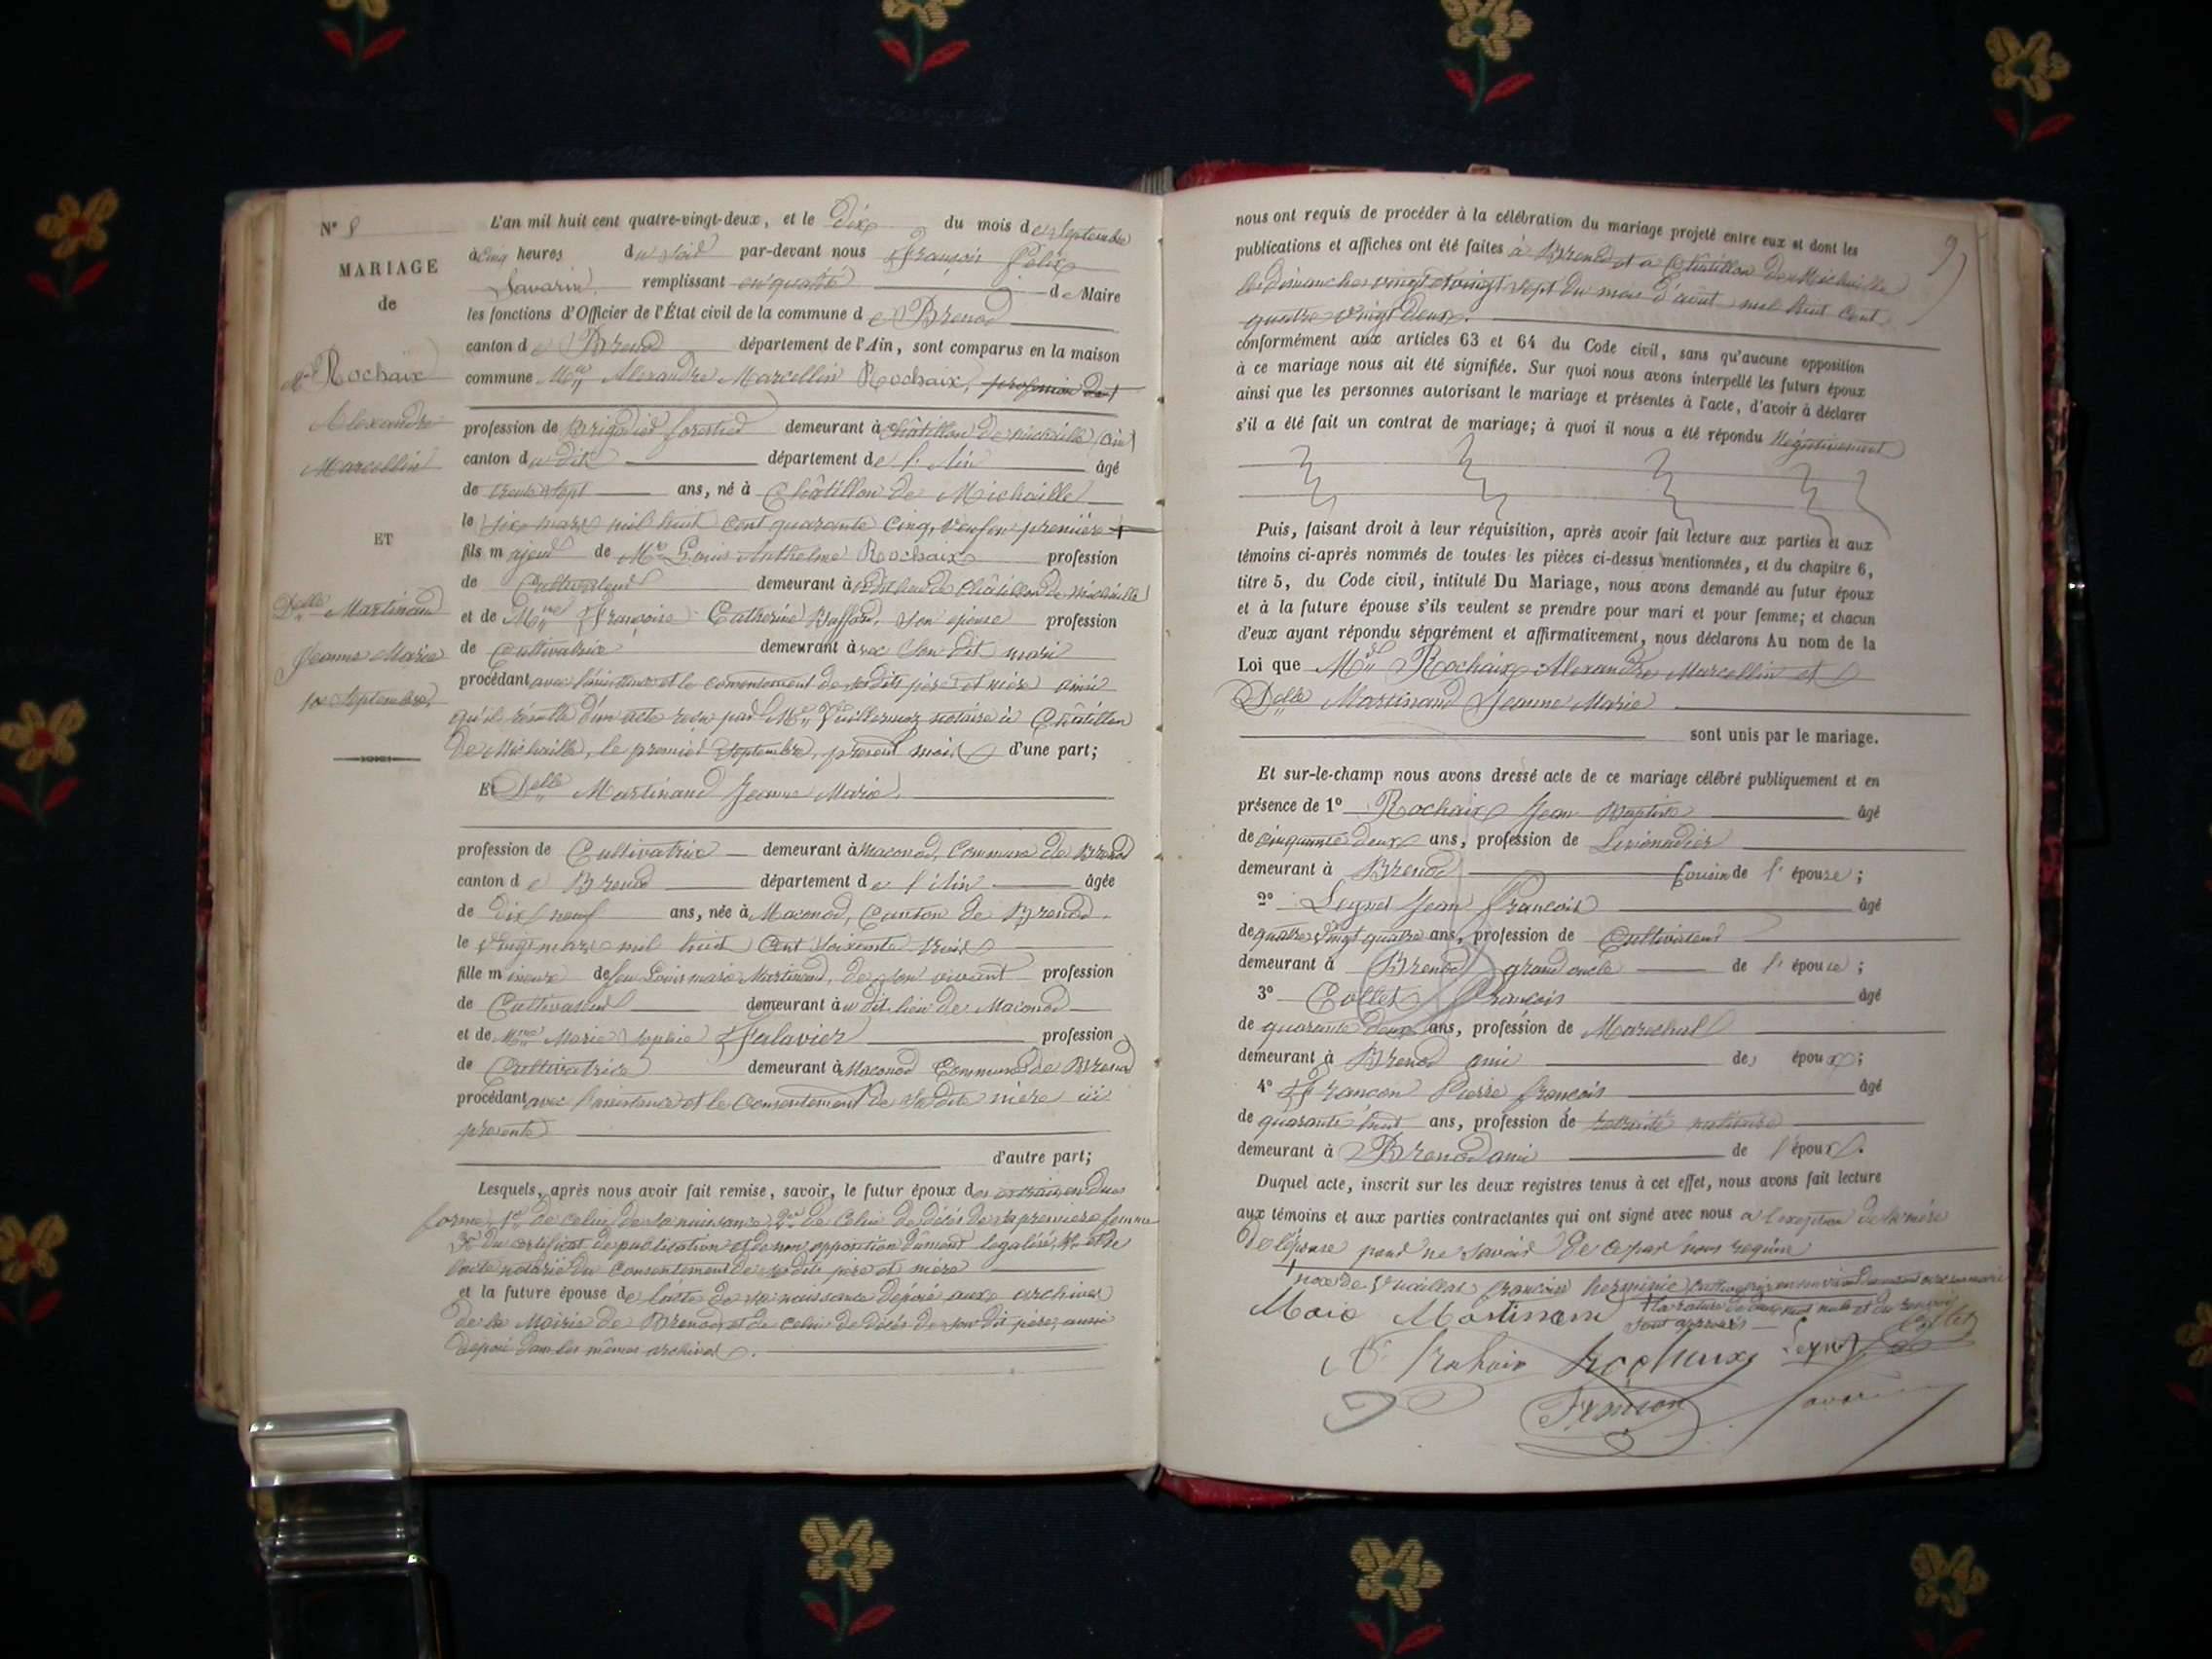 N° 8
MARIAGE
de
Mr Rochaix
Alexandre
Marcellin
ET
Delle Martinand
Jeanne Marie
10 Septembre
L'an mil huit cent quatre-vingt-deux, et le dix du mois de Septembre
à cinq heures du soir par-devant nous François Félix
Savarin remplissant en qualité de Maire
les fonctions d'Officier de l'État civil de la commune de Brenod
canton de Brenod département de l'Ain, sont comparus en la maison
commune Mr Alexandre Marcellin Rochaix, profession de
profession de Brigadier forestier demeurant à Châtillon de Michaille (Ain)
canton du dit département de l'Ain âgé
de trente sept ans, né à Châtillon de Michaille
le six mars mil huit cent quarante cinq, veuf en première +
fils majeur de Mr Louis Anthelme Rochaix profession
de Cultivateur demeurant audit lieu de Châtillon de Michaille
et de Mme Françoise Catherine Buffard, son épouse profession
de Cultivatrice demeurant avec son dit mari
procédant avec l'assistance et le consentement de ses dits père et mère ainsi
qu'il résulte d'un acte reçu par Me Vuillermoz notaire à Châtillon
de Michaille, le premier Septembre, présent mois d'une part;
Et Delle Martinand Jeanne Marie
profession de Cultivatrice demeurant à Maconod, Commune de Brenod
canton de Brenod département de l'Ain âgée
de dix neuf ans, née à Maconod, Canton de Brenod
le vingt mars mil huit cent soixante trois
fille mineure de feu Louis marie Martinand, de son vivant profession
de Cultivateur demeurant au dit lieu de Maconod
et de Mme Marie Sophie Falavier profession
de Cultivatrice demeurant à Maconod Commune de Brenod
procédant avec l'assistance et le consentement de sa dite mère ici
présente
d'autre part;
Lesquels, après nous avoir fait remise, savoir, le futur époux des extraits en dues
formes 1° de celui de sa naissance, 2° de celui de décès de sa première femme
3° du certificat de publication et de non opposition dûment légalisé, 4° et de
l'acte notarié du consentement de ses dits père et mère
et la future épouse de l'acte de sa naissance déposé aux archives
de la Mairie de Brenod et de celui de décès de son dit père, aussi
déposé dans les mêmes archives.
9
nous ont requis de procéder à la célébration du mariage projeté entre eux et dont les
publications et affiches ont été faites à Brenod et à Châtillon de Michaille
les dimanches vingt et vingt sept du mois d'août mil huit cent
quatre vingt deux.
conformément aux articles 63 et 64 du Code civil, sans qu'aucune opposition
à ce mariage nous ait été signifiée. Sur quoi nous avons interpellé les futurs époux
ainsi que les personnes autorisant le mariage et présentes à l'acte, d'avoir à déclarer
s'il a été fait un contrat de mariage; à quoi il nous a été répondu Négativement
Puis, faisant droit à leur réquisition, après avoir fait lecture aux parties et aux
témoins ci-après nommés de toutes les pièces ci-dessus mentionnées, et du chapitre 6,
titre 5, du Code civil, intitulé Du Mariage, nous avons demandé au futur époux
et à la future épouse s'ils veulent se prendre pour mari et pour femme; et chacun
d'eux ayant répondu séparément et affirmativement, nous déclarons Au nom de la
Loi que Mr Rochaix Alexandre Marcellin et
Delle Martinand Jeanne Marie
sont unis par le mariage.
Et sur-le-champ nous avons dressé acte de ce mariage célébré publiquement et en
présence de 1° Rochaix Jean Baptiste âgé
de cinquante deux ans, profession de Limonadier
demeurant à Brenod Cousin de l'épouse;
2° Leynet Jean François âgé
de quatre vingt quatre ans, profession de Cultivateur
demeurant à Brenod grand oncle de l'épouse;
3° Collet François âgé
de quarante deux ans, profession de Maréchal
demeurant à Brenod ami des époux;
4° Françon Pierre françois âgé
de quarante huit ans, profession de
demeurant à Brenod ami de l'époux.
Duquel acte, inscrit sur les deux registres tenus à cet effet, nous avons fait lecture
aux témoins et aux parties contractantes qui ont signé avec nous à l'exception de la mère
de l'épouse pour ne savoir de ce par nous requise
+ noce de Vuaillat françoise herminie
Marie Martinand
A Rochaix Rochaix Leynet Collet
Françon Savarin